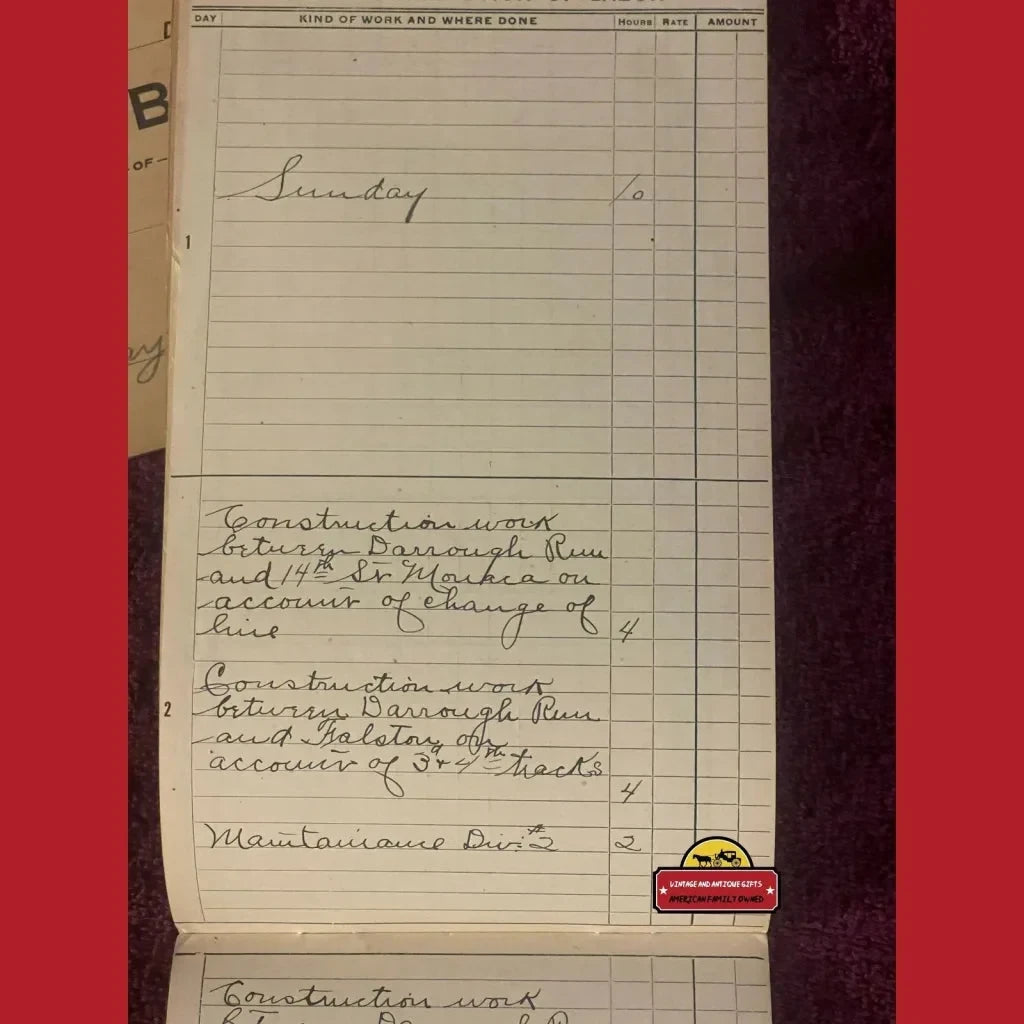 B
OF—
DAY KIND OF WORK AND WHERE DONE HOURS RATE AMOUNT
Sunday 10
1
Construction work
between Darrough Run
and 14th St Monaca on
account of change of
line 4
Construction work
2 between Darrough Run
and Galston on
account of 3d & 4th tracks
4
Maintainance Div. #2 2
VINTAGE AND ANTIQUE GIFTS
AMERICAN FAMILY OWNED
Construction work